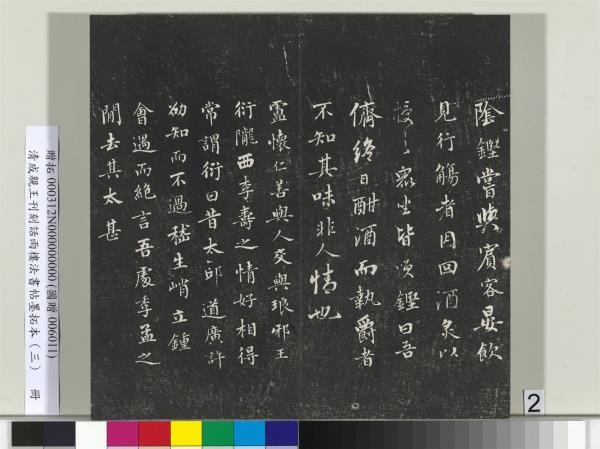 陰鏗嘗與賓客晏飲
見行觴者因回酒炙以
授之衆坐皆笑鏗曰吾
儕終日酣酒而執爵者
不知其味非人情也
盧懷仁善與人交與琅邪王
衍隴西李壽之情好相得
常謂衍曰昔太邱道廣許
劭知而不過嵇生峭立鍾
會遇而絕言吾處季孟之
閒去其太甚
贈拓 000312N000000000 (國贈 006011)
清成親王刊刻話雨樓法書帖墨拓本（三） 冊
2